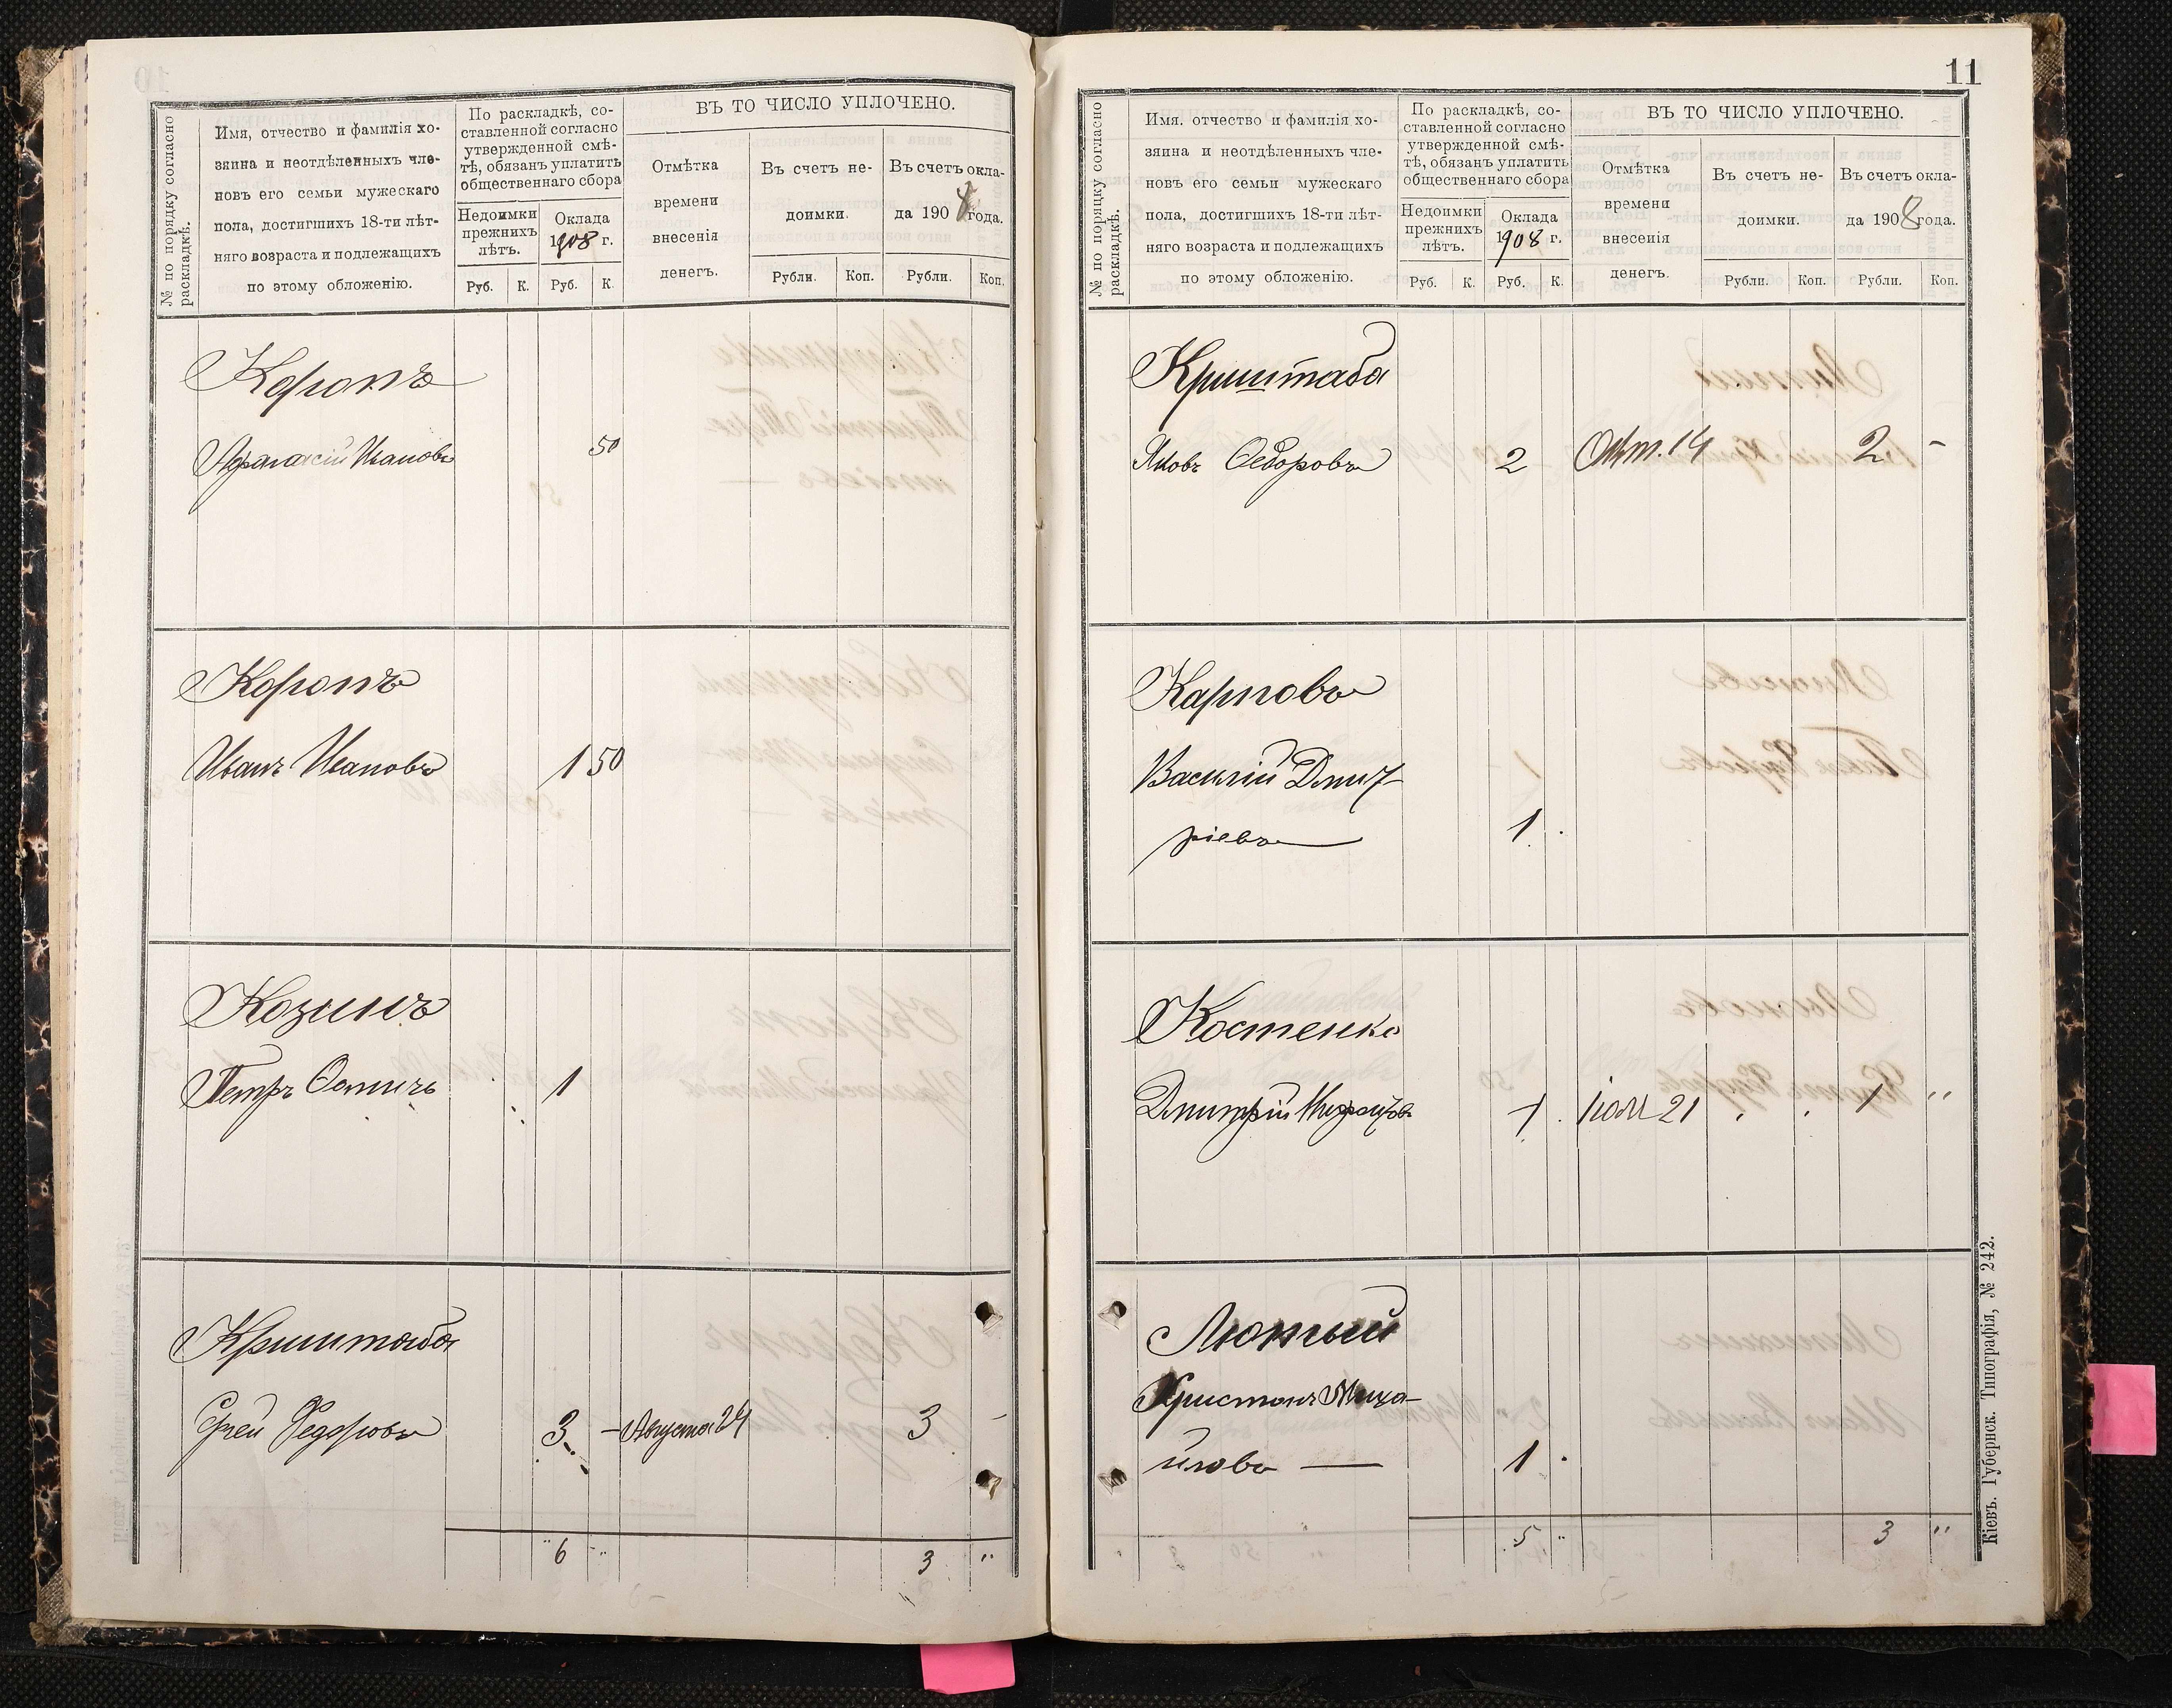 № по порядку согласно
раскладкѣ.
Имя, отчество и фамилія хо-
зяина и неотдѣленныхъ чле-
новъ его семьи мужескаго
пола, достигшихъ 18-ти лѣт-
няго возраста и подлежащихъ
по этому обложенію.
По раскладкѣ, со-
ставленной согласно
утвержденной смѣ-
тѣ, обязанъ уплатить
общественнаго сбора
Недоимки
прежнихъ
лѣтъ.
Оклада
1908 г.
Руб. К. Руб. К.
ВЪ ТО ЧИСЛО УПЛОЧЕНО.
Отмѣтка
времени
внесенія
денегъ.
Въ счетъ не-
доимки.
Въ счетъ окла-
да 1908 года.
Рубли. Коп. Рубли. Коп.
Коропъ
Афанасій Ивановъ 50
Коропъ
Иванъ Ивановъ 1 50
Козинъ
Петръ 1
Криштаба
Федоровъ 3 - Августа 24 3 -
6 " 3 "
11
№ по порядку согласно
раскладкѣ.
Имя. отчество и фамилія хо-
зяина и неотдѣленныхъ чле-
новъ его семьи мужескаго
пола, достигшихъ 18-ти лѣт-
няго возраста и подлежащихъ
по этому обложенію.
По раскладкѣ, со-
ставленной согласно
утвержденной смѣ-
тѣ, обязанъ уплатить
общественнаго сбора
Недоимки
прежнихъ
лѣтъ.
Оклада
1908 г.
Руб. К. Руб. К.
ВЪ ТО ЧИСЛО УПЛОЧЕНО.
Отмѣтка
времени
внесенія
денегъ.
Въ счетъ не-
доимки.
Въ счетъ окла-
да 1908 года.
Рубли. Коп. Рубли. Коп.
Криштаба
Яковъ Ѳедоровъ 2 Окт. 14 2 -
Карповъ
Василій Дмит-
ріевъ 1
Костенко
Дмитрій 1 Іюл 21 1 "
Лютый
Христанъ Миха-
йловъ 1
5 " 3 "
Кіевъ. Губернск. Типографія, № 242.